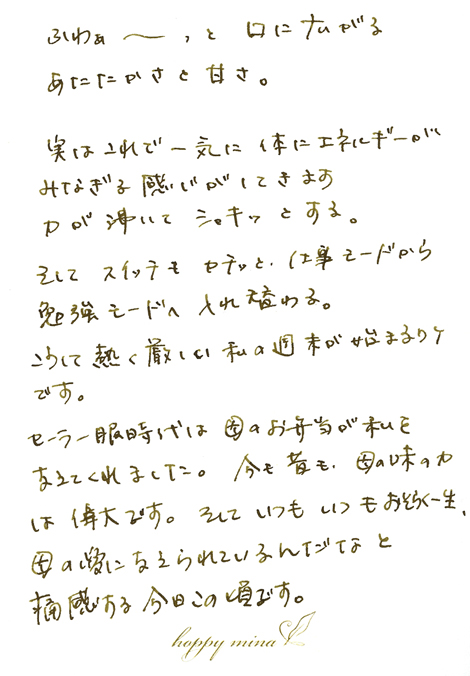 ふわぁ〜っと 口に広がる
あたたかさと甘さ。
実はこれで一気に体にエネルギーが
みなぎる感じがしてきます
力が沸いて シャキッとする。
そして スイッチも カチッと、仕事モードから
勉強モードへ 入れ替わる。
こうして熱く厳しい私の週末が始まるワケ
です。
セーラー服時代は母のお弁当が私を
支えてくれました。今も昔も、母の味の力
は偉大です。そしていつもいつもおそらく一生、
母の愛に支えられているんだなと
痛感する今日この頃です。
happy mina